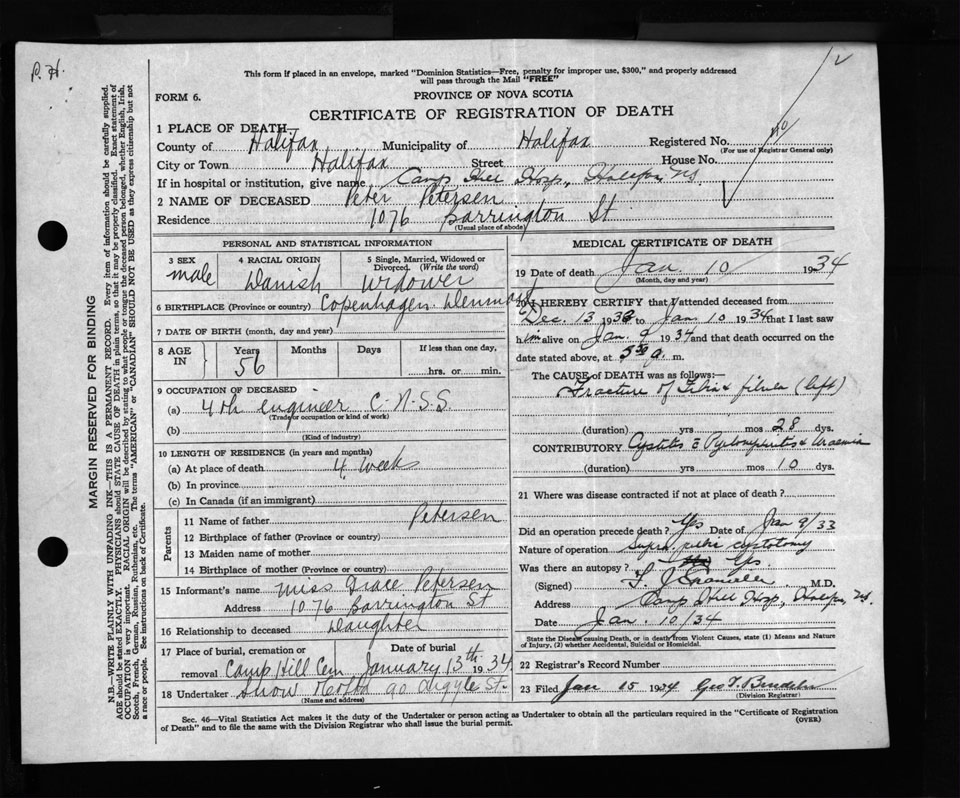 P. H.
This form if placed in an envelope, marked "Dominion Statistics—Free, penalty for improper use, $300," and properly addressed
will pass through the Mail "FREE"
FORM 6.
PROVINCE OF NOVA SCOTIA
CERTIFICATE OF REGISTRATION OF DEATH
1 PLACE OF DEATH—
County of Halifax Municipality of Halifax Registered No.
(For use of Registrar General only)
City or Town Halifax Street House No.
If in hospital or institution, give name Camp Hill Hosp., Halifax, NS
2 NAME OF DECEASED Peter Petersen
Residence 1076 Barrington St
(Usual place of abode)
PERSONAL AND STATISTICAL INFORMATION
3 SEX male
4 RACIAL ORIGIN Danish
5 Single, Married, Widowed or Divorced. (Write the word) Widower
6 BIRTHPLACE (Province or country) Copenhagen Denmark
7 DATE OF BIRTH (month, day and year)
8 AGE IN Years 56 Months Days If less than one day, hrs. or min.
9 OCCUPATION OF DECEASED
(a) 4th engineer C.N.S.S.
(Trade or occupation or kind of work)
(b)
(Kind of industry)
10 LENGTH OF RESIDENCE (in years and months)
(a) At place of death 4 weeks
(b) In province
(c) In Canada (if an immigrant)
Parents
11 Name of father Petersen
12 Birthplace of father (Province or country)
13 Maiden name of mother
14 Birthplace of mother (Province or country)
15 Informant's name Miss Grace Petersen
Address 1076 Barrington St
16 Relationship to deceased Daughter
17 Place of burial, cremation or removal Camp Hill Cem Date of burial January 13th 1934
18 Undertaker Snow 90 Argyle St.
(Name and address)
MEDICAL CERTIFICATE OF DEATH
19 Date of death Jan 10 1934
(Month, day and year)
20 I HEREBY CERTIFY that I attended deceased from
Dec. 13 1933 to Jan 10 1934 that I last saw
him alive on Jan. 9 1934 and that death occurred on the
date stated above, at 5 30 a. m.
The CAUSE of DEATH was as follows:—
Fracture of Tibia & fibula (left)
(duration) yrs mos 28 dys.
CONTRIBUTORY Cystitis c Pyelonephritis & Uraemia
(duration) yrs mos 10 dys.
21 Where was disease contracted if not at place of death?
Did an operation precede death? Yes Date of Jan 9/33
Nature of operation Supra pubic cystotomy
Was there an autopsy? Yes
(Signed) M.D.
Address Camp Hill Hosp, Halifax, NS.
Date Jan. 10/34
State the Disease causing Death, or in death from Violent Causes, state (1) Means and Nature
of Injury, (2) whether Accidental, Suicidal or Homicidal.
22 Registrar's Record Number
23 Filed Jan 15 1934
(Division Registrar)
Sec. 46—Vital Statistics Act makes it the duty of the Undertaker or person acting as Undertaker to obtain all the particulars required in the "Certificate of Registration
of Death" and to file the same with the Division Registrar who shall issue the burial permit.
(OVER)
MARGIN RESERVED FOR BINDING
N.B.—WRITE PLAINLY WITH UNFADING INK—THIS IS A PERMANENT RECORD. Every item of information should be carefully supplied.
AGE should be stated EXACTLY. PHYSICIANS should STATE CAUSE OF DEATH in plain terms, so that it may be properly classified. Exact statement of
OCCUPATION is very important. RACIAL ORIGIN will be described by stating to what people or tongue the deceased person belonged, whether English, Irish,
Scotch, French, German, Russian, Ruthenian, etc. The terms "AMERICAN" or "CANADIAN" SHOULD NOT BE USED as they express citizenship but not
a race or people. See instructions on back of Certificate.